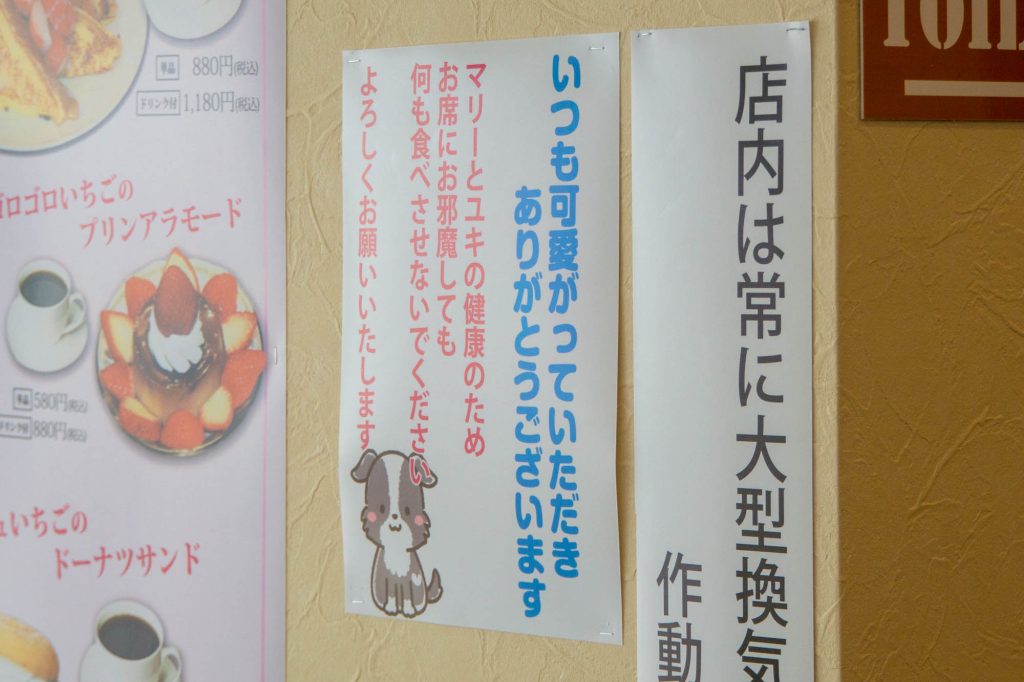 単品 880円(税込)
ドリンク付 1,180円(税込)
ゴロゴロいちごの
プリンアラモード
単品 580円(税込)
ドリンク付 880円(税込)
いちごの
ドーナツサンド
いつも可愛がっていただき
ありがとうございます
マリーとユキの健康のため
お席にお邪魔しても
何も食べさせないでください
よろしくお願いいたします
店内は常に大型換気
作動